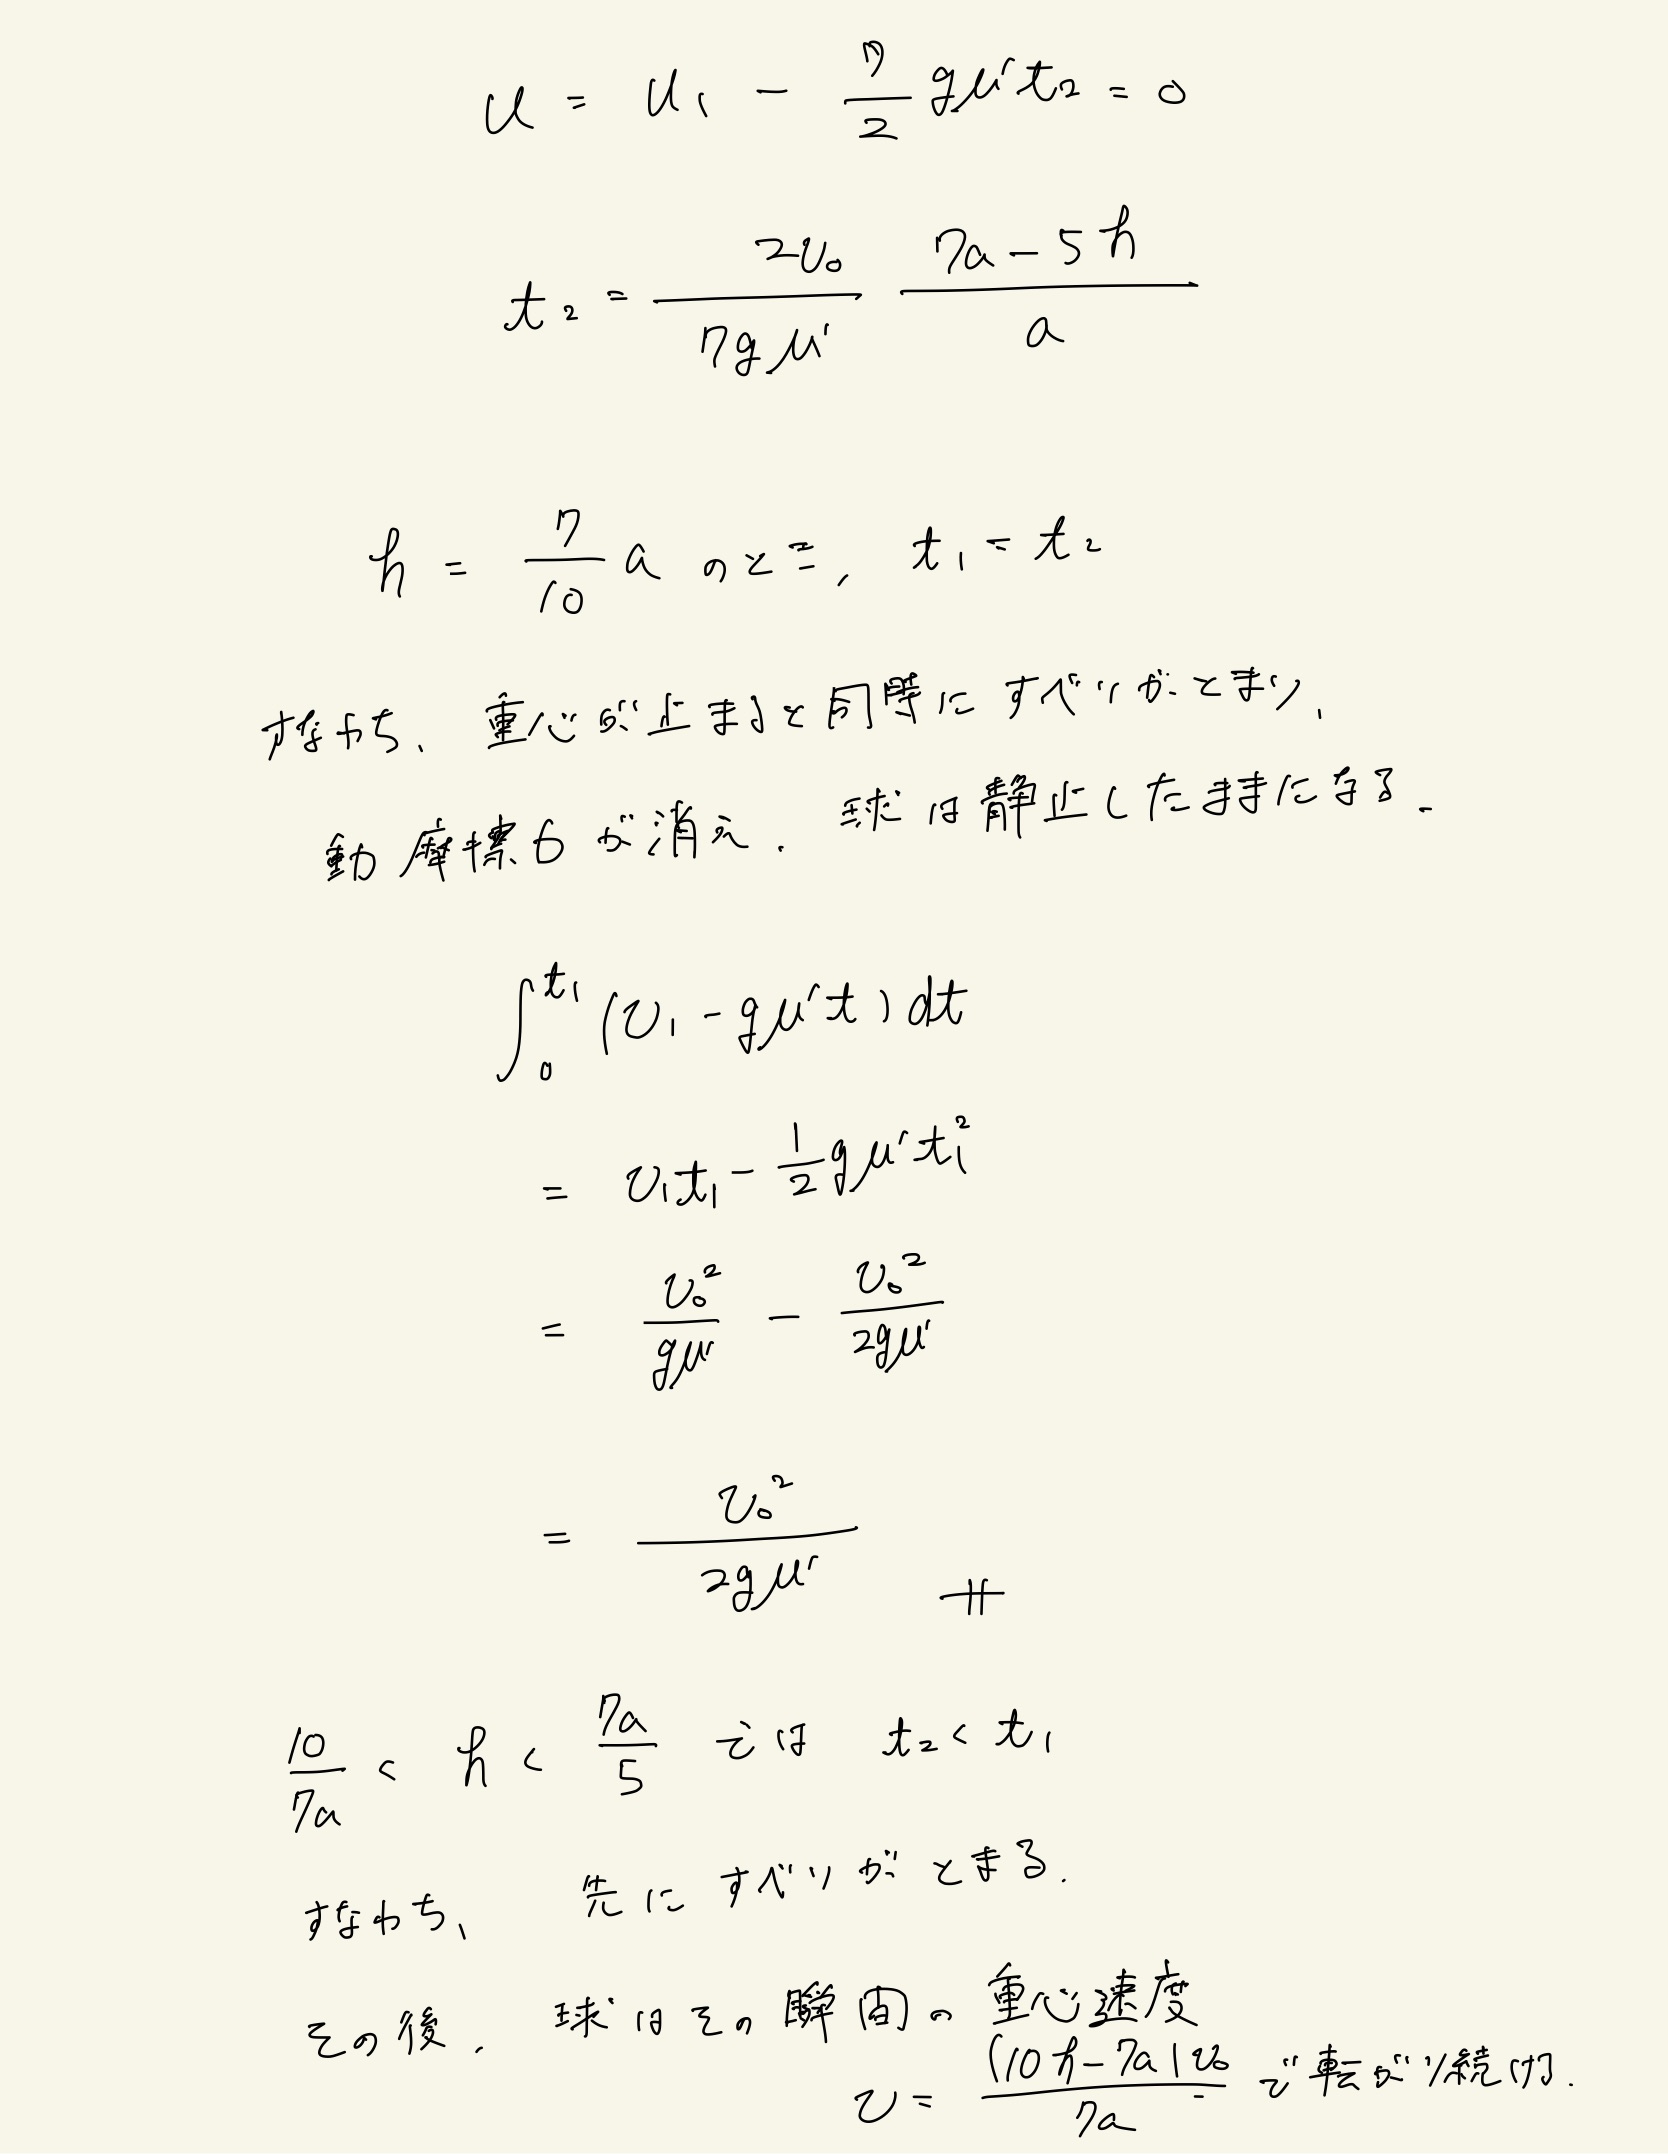 u = u₁ - 7/2 gμ't₂ = 0
t₂ = 2v₀/7gμ' (7a - 5h)/a
h = 7/10 a のとき, t₁ = t₂
すなわち、重心が止まると同時にすべりがとまり、
動摩擦力が消え. 球は静止したままになる.
∫₀^t₁ (v₁ - gμ't) dt
= v₁t₁ - 1/2 gμ't₁²
= v₀²/gμ' - v₀²/2gμ'
= v₀²/2gμ' #
10/7a < h < 7a/5 では t₂ < t₁
すなわち、 先にすべりがとまる.
その後. 球はその瞬間の重心速度
v = (10h - 7a)v₀/7a で転がり続ける.